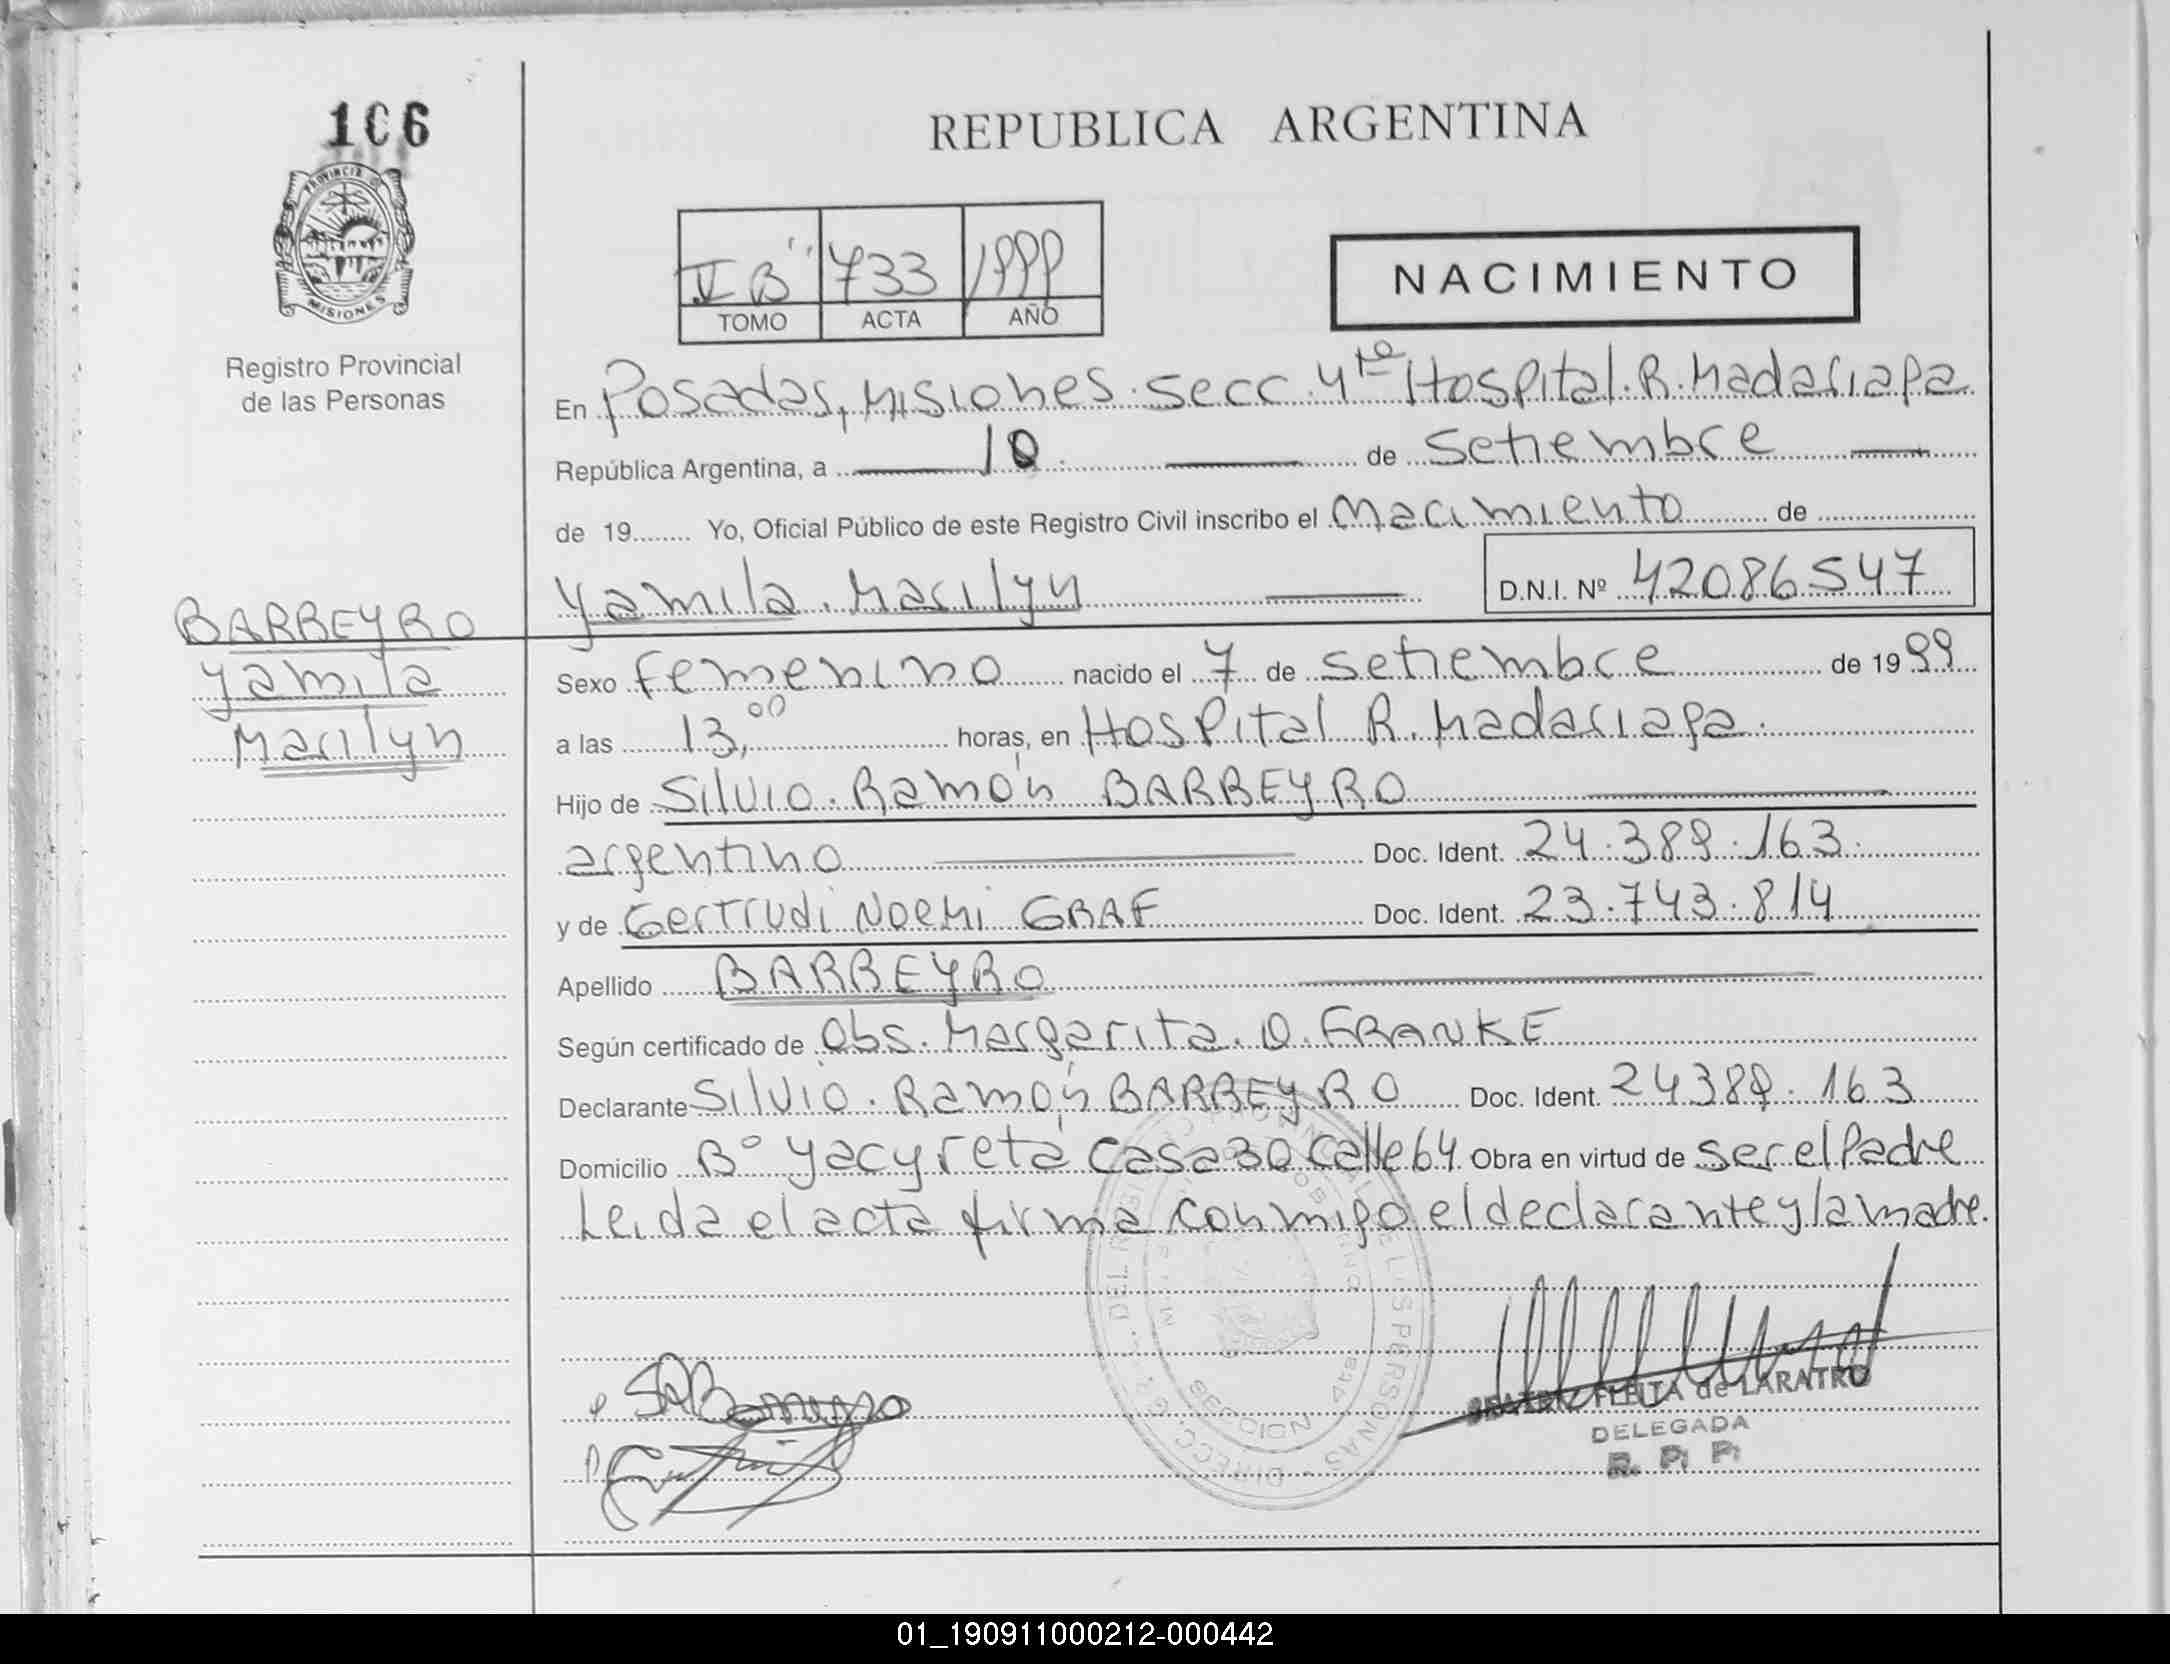 106
REPUBLICA ARGENTINA
PROVINCIA DE
MISIONES
Registro Provincial
de las Personas
B" 733 1999
TOMO ACTA AÑO
NACIMIENTO
En Posadas, Misiones. secc. 4ta Hospital. R. Madariaga
República Argentina, a 10 de Setiembre
de 19........ Yo, Oficial Público de este Registro Civil inscribo el Nacimiento de
Yamila. Marilyn D.N.I. Nº 42086547
BARREYRO
Yamila
Marilyn
Sexo Femenino nacido el 7 de Setiembre de 19 99
a las 13,00 horas, en Hospital R. Madariaga.
Hijo de Silvio. Ramón BARREYRO
argentino Doc. Ident. 24.389.163.
y de Gertrudi Noemi GRAF Doc. Ident. 23.743.814
Apellido BARREYRO
Según certificado de Obs. Margarita. O. FRANKE
Declarante Silvio. Ramón BARREYRO Doc. Ident. 24389.163
Domicilio Bº Yacyreta Casa 30 Calle 64 Obra en virtud de ser el Padre
Leida el acta firma conmigo el declarante y la madre.
SECCION 4ta
BEATRIZ FLEITA de LARATRO
DELEGADA
R. P. P.
01_190911000212-000442